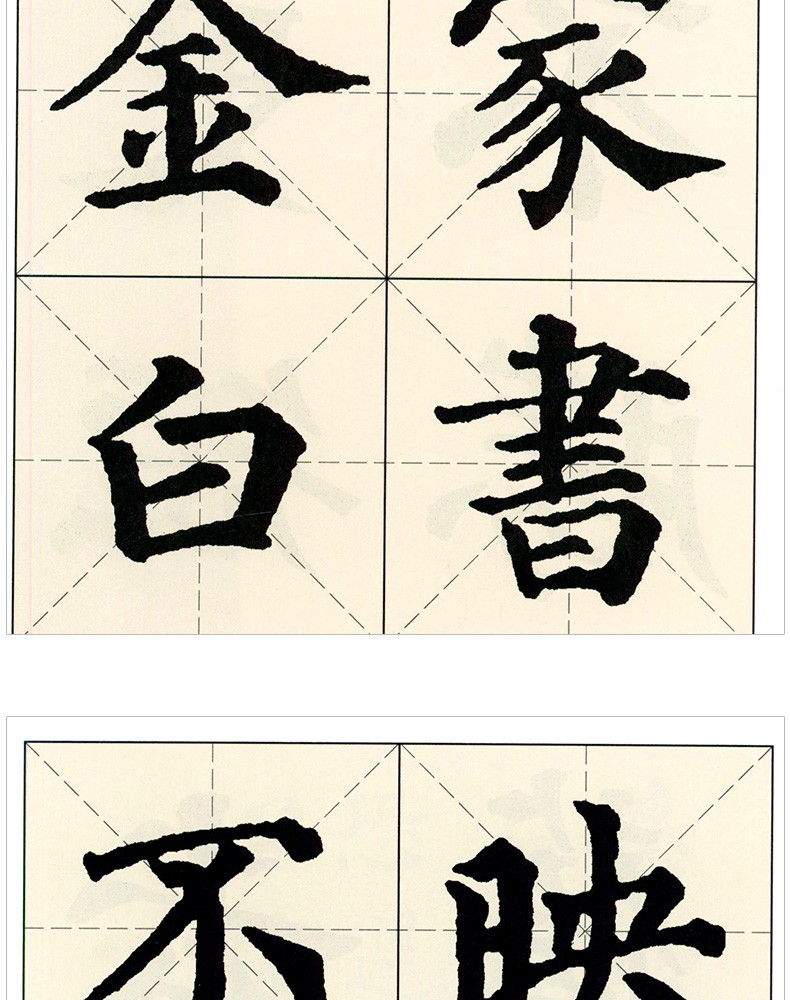 家書
金白
映
不